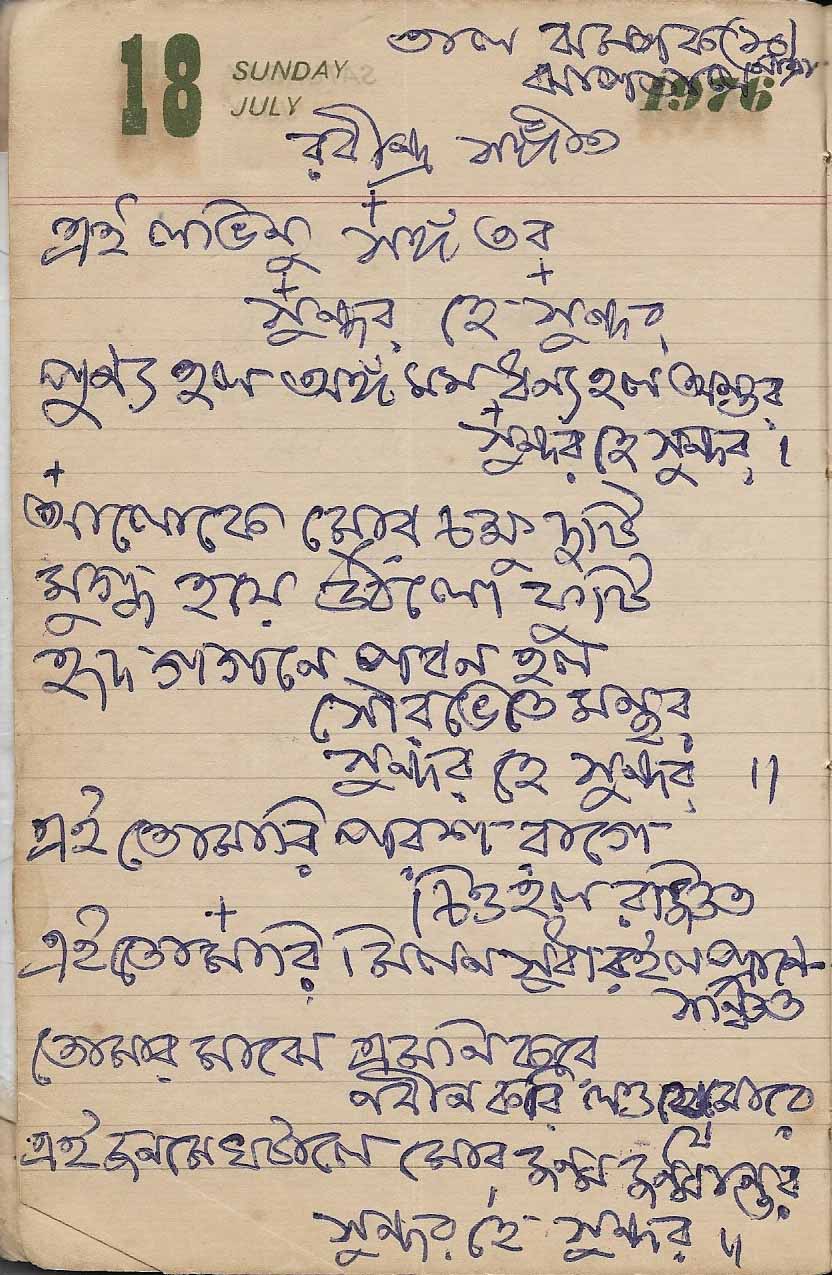 18 SUNDAY
JULY 1976
তাল ঝম্পক (১০
মাত্রা)
রবীন্দ্র সঙ্গীত
এই লভিনু সঙ্গ তব
সুন্দর হে সুন্দর
পুণ্য হল অঙ্গ মম ধন্য হল অন্তর
সুন্দর হে সুন্দর।
আলোকে মোর চক্ষু দুটি
মুগ্ধ হয়ে উঠলো ফুটি
হৃদ গগনে পবন হল
সৌরভেতে মন্থর
সুন্দর হে সুন্দর ॥
এই তোমারি পরশ রাগে
চিত্ত হল রঞ্জিত
এই তোমারি মিলন সুধা রইল প্রাণে
সঞ্চিত
তোমার মাঝে এমনি করে
নবীন করি লও মোরে
এই জনমে ঘটালে মোর জন্ম জন্মান্তর
সুন্দর হে সুন্দর ॥